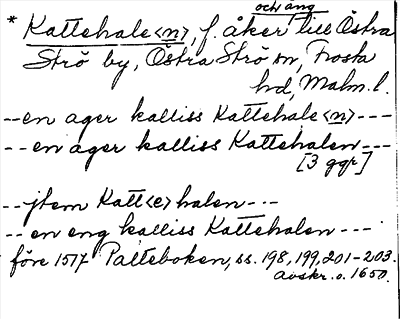 och äng
* Kattehale<n>, f. åker till Östra
Strö by, Östra Strö sn, Frosta
hd, Malm. l.
--en ager kalliss Kattehale<n>---
--en ager kalliss Kattehalen---
[3 ggr]
--jtem Katt<e>halen---
--en eng kalliss Kattehalen---
före 1517 Palteboken, ss. 198, 199, 201-203.
Avskr. o. 1650.